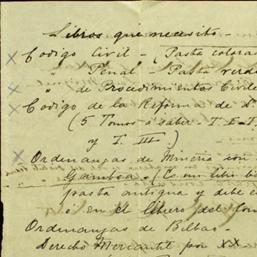 Libros que necesito —
Codigo Civil — (Pasta colorad
" Penal — Pasta verde
" de Procedimientos Civile
Codigo de la Reforma de
(5 Tomos á saber. T. I.
y T. III)
Ordenanzas de Mineria con
Gamboa.
pasta antigua y debe e
ó en el
Ordenanzas de Bilbao.
Derecho Mercantil por XX